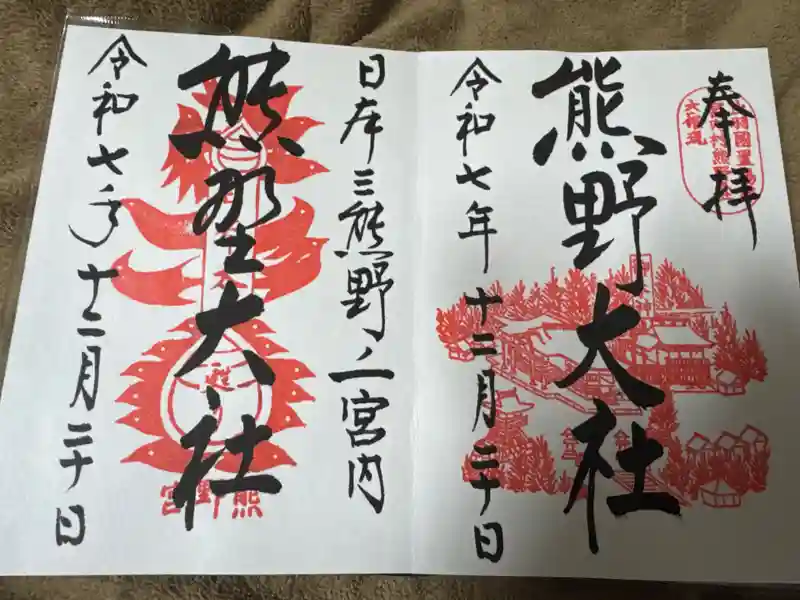 奉拝
熊野大社
令和七年十二月二十日
日本三熊野ノ一宮内
熊野大社
令和七年十二月二十日
熊野宮